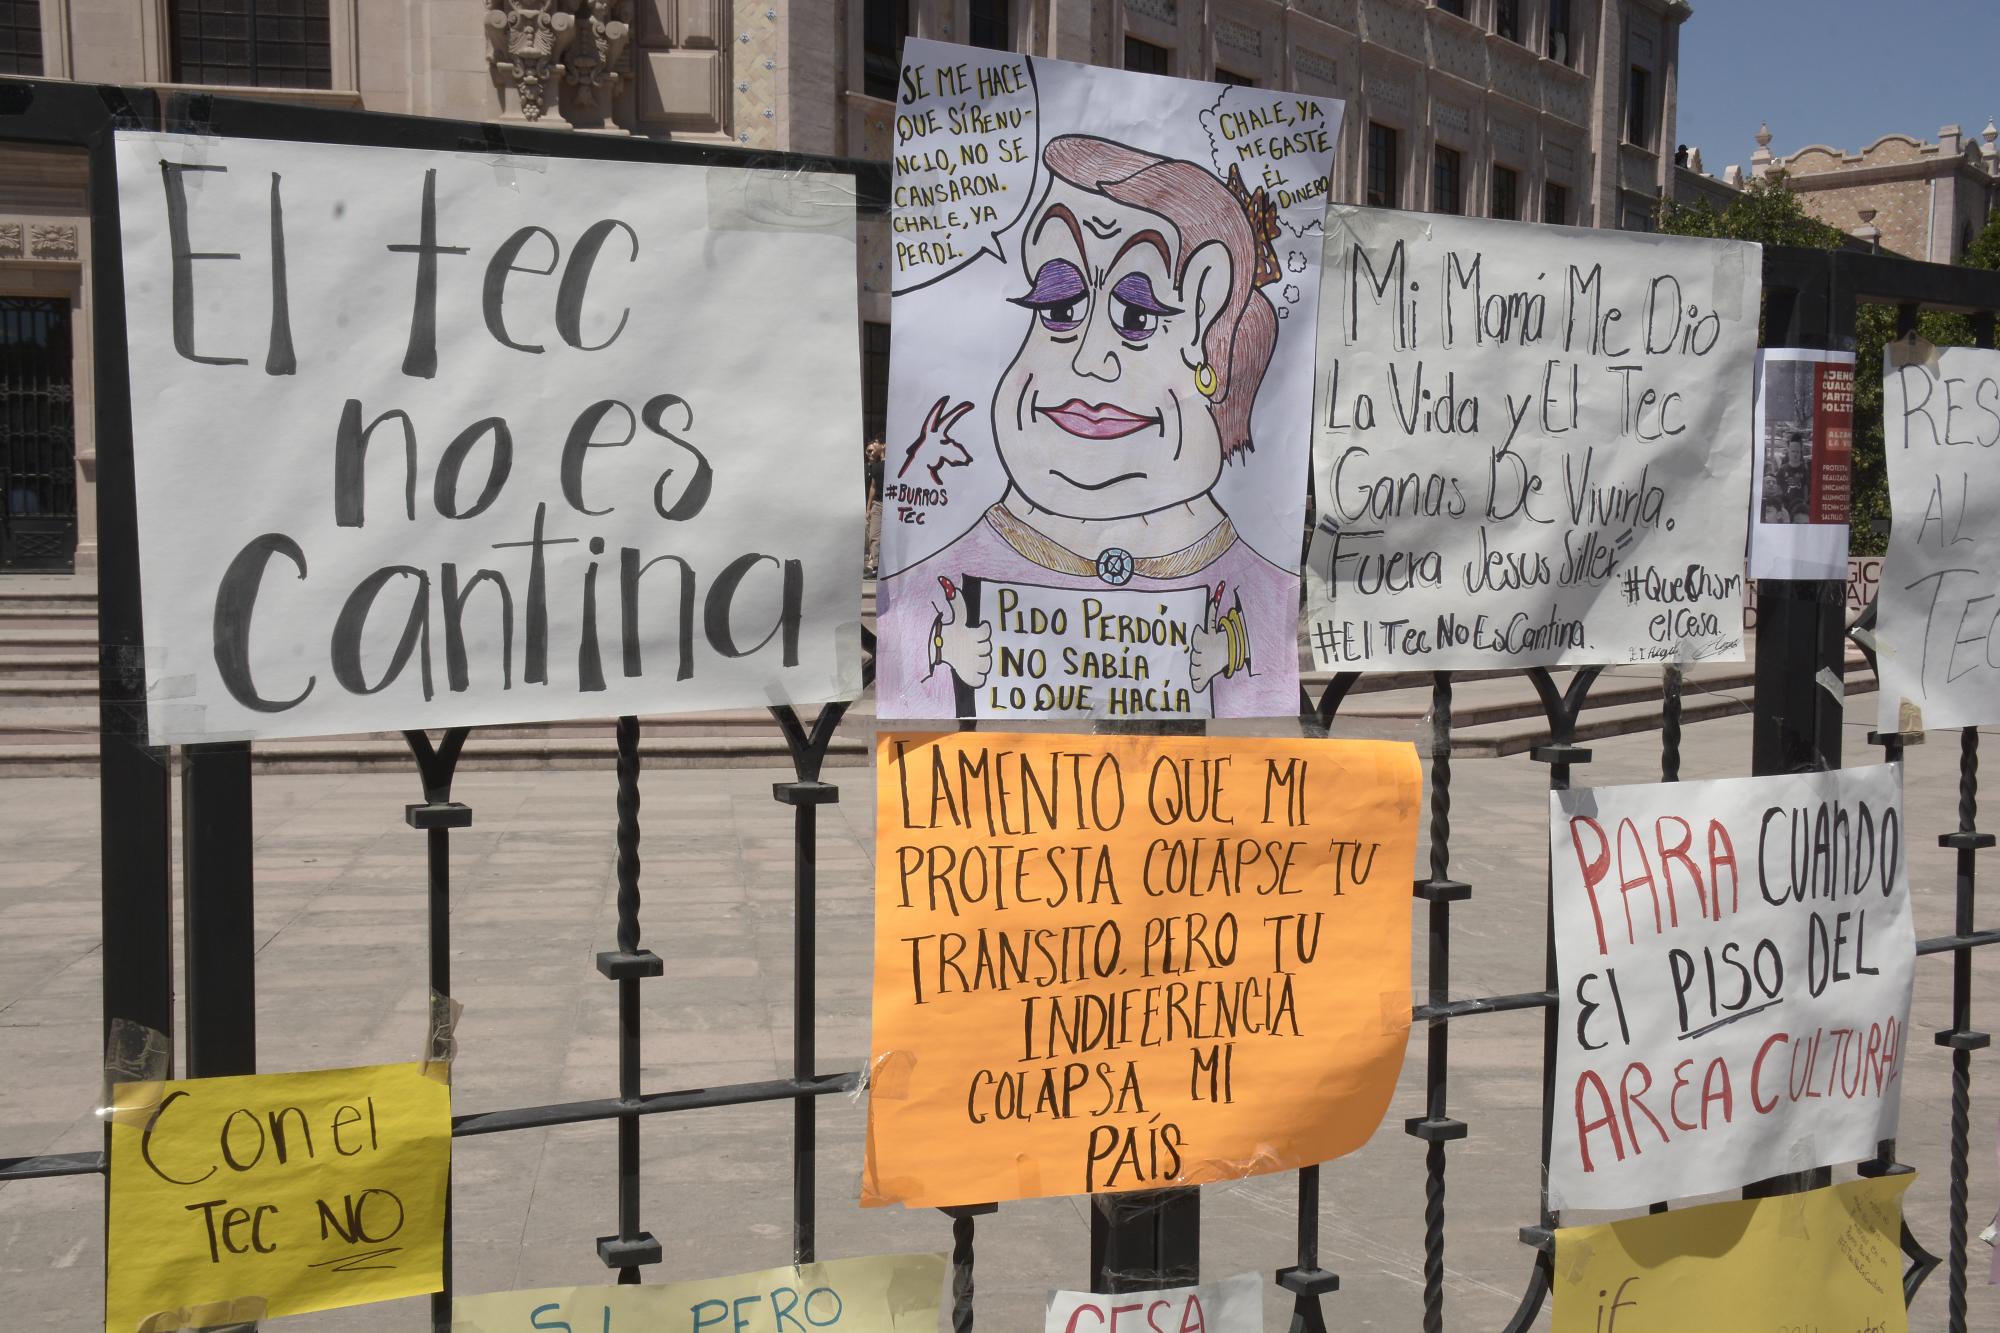 El tec
no es
Cantina
SE ME HACE
QUE SÍ RENU-
NCIO, NO SE
CANSARON.
CHALE, YA
PERDÍ.
CHALE, YA
ME GASTÉ
ÉL
DINERO
#BURROS
TEC
PIDO PERDÓN,
NO SABÍA
LO QUE HACÍA
Mi Mamá Me Dio
La Vida y El Tec
Ganas De Vivirla.
"Fuera Jesus Siller"
#QueChsm
elCesa.
#ElTecNoEsCantina.
AJENO
CUALQ
PARTI
POLIT
ALZA
LA V
PROTESTA
REALIZADA
UNICAMEN
ALUMNOS
SALTILLO
RES
AL
TEC
LAMENTO QUE MI
PROTESTA COLAPSE TU
TRANSITO, PERO TU
INDIFERENCIA
COLAPSA MI
PAÍS
PARA CUANDO
El PISO DEL
AREA CULTURAL
Con el
Tec NO
SI PERO
CESA
if